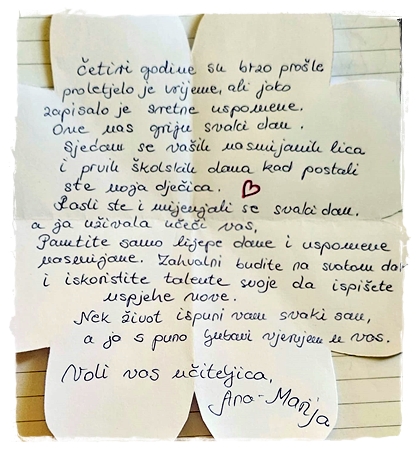 Četiri godine su brzo prošle
proletjelo je vrijeme, ali jako
zapisalo je sretne uspomene.
One nas griju svaki dan.
Sjećam se vaših nasmijanih lica
i prvih školskih dana kad postali
ste moja dječica.
Rasli ste i mijenjali se svaki dan,
a ja uživala učeći vas,
Pamtite samo lijepe dane i uspomene
nasmijane. Zahvalni budite na svakom dan
i iskoristite talente svoje da ispišete
uspjehe nove.
Nek život ispuni vam svaki san,
a ja s puno ljubavi vjerujem u vas.
Voli vas učiteljica,
Ana-Marija